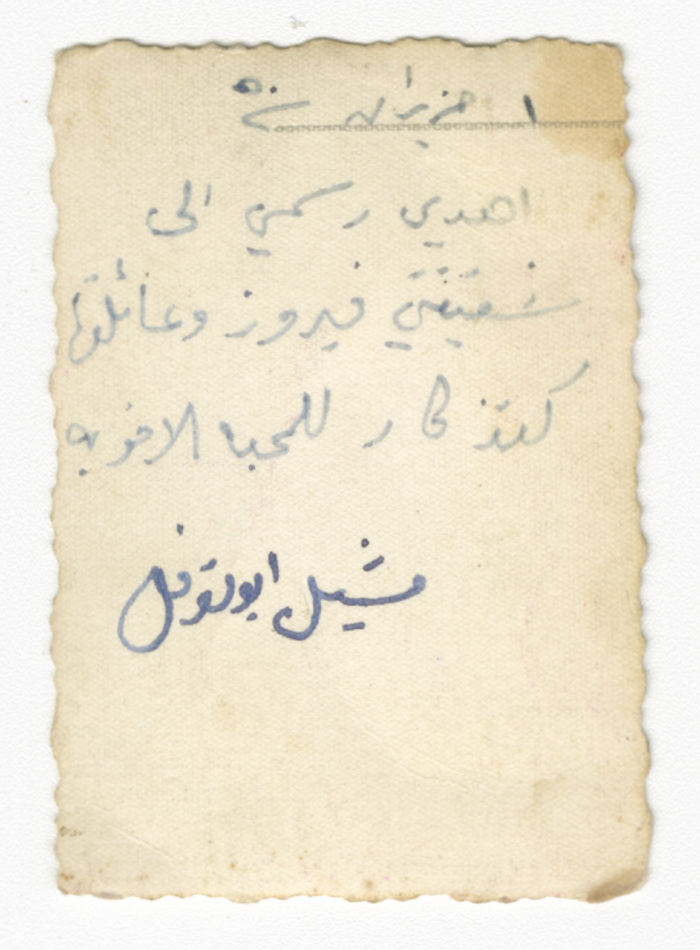 ١ حزيران ٥٠
اهدي رسمي الى
شقيقتي فيروز وعائلتها
كتذكار للمحبا الاخويه
ميشيل ابو نوفل